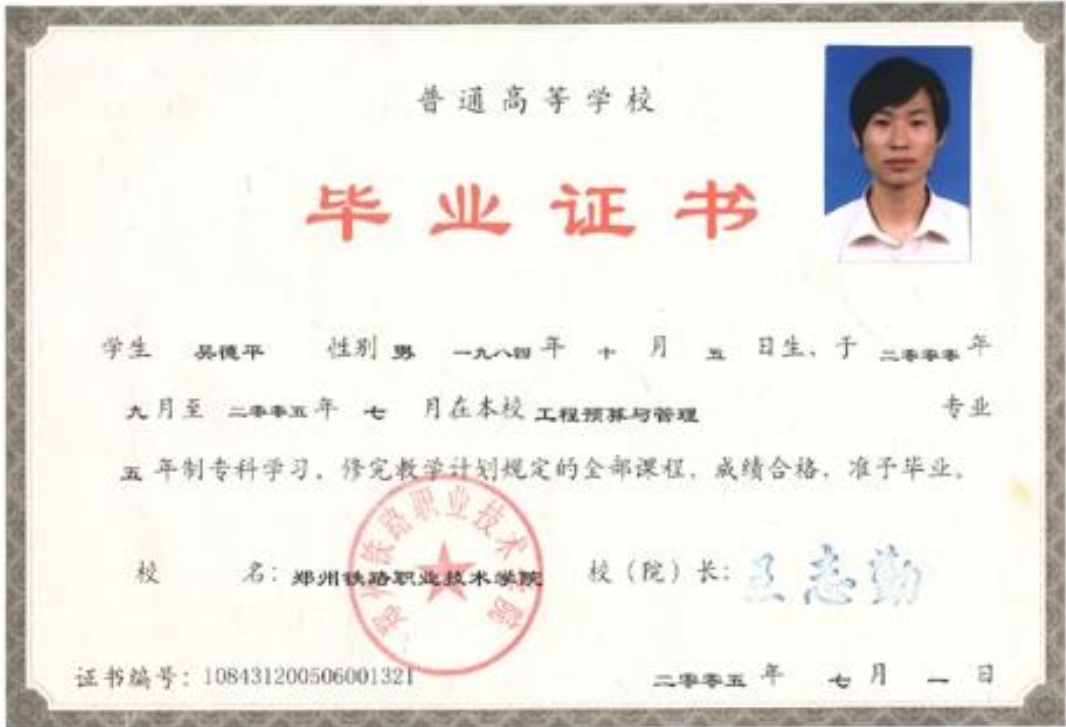 普通高等学校
毕业证书
学生 吴德平 性别 男 一九八四 年 十 月 五 日生、于 二零零零 年
九 月至 二零零五 年 七 月在本校 工程预算与管理 专业
五 年制专科学习，修完教学计划规定的全部课程，成绩合格，准予毕业。
郑州铁路职业技术学院
校 名：郑州铁路职业技术学院 校（院）长：王志勤
证书编号：108431200506001321 二零零五 年 七 月 一 日